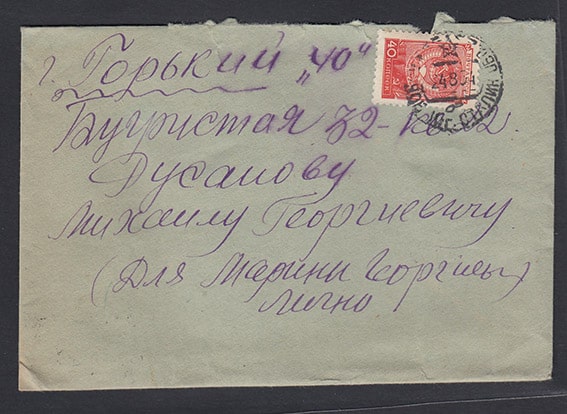 г. Горький „40"
Бугристая 32-кв 2.
Русанову
Михаилу Георгиевичу
(Для Марины Георгиевны)
лично
40